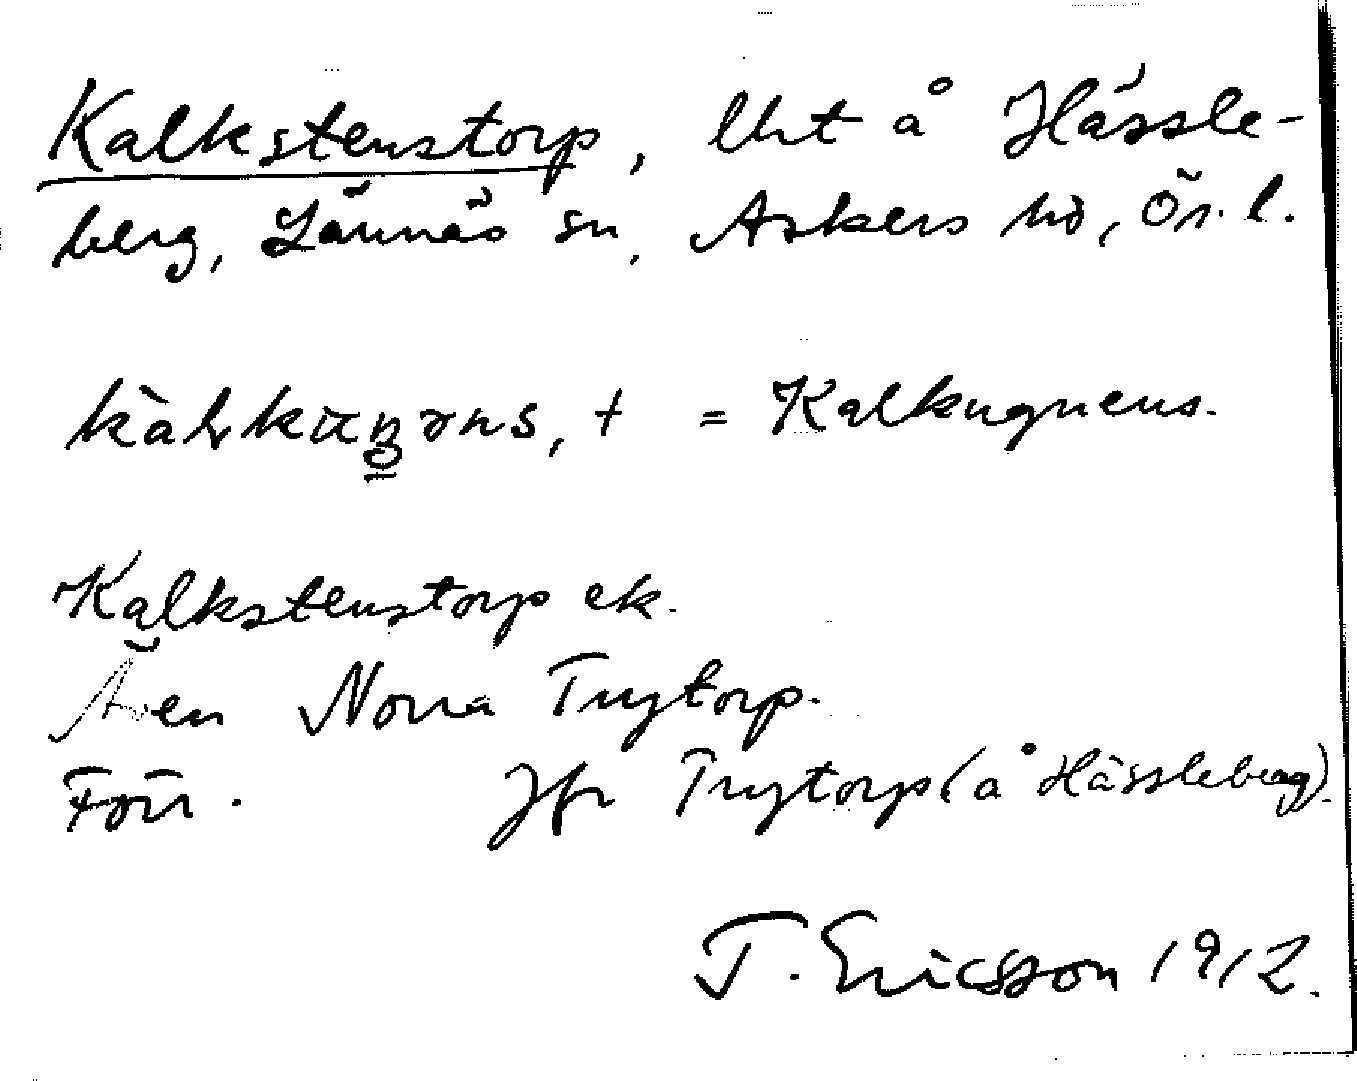 Kalkstenstorp, lht å Hässle-
berg, Lännäs sn, Askers hd, Ör. l.
= Kalkugnens.
Kalkstenstorp ek.
Även Norra Trytorp.
Förr. Jfr Trytorp (å Hässleberg).
T. Ericsson 1912.